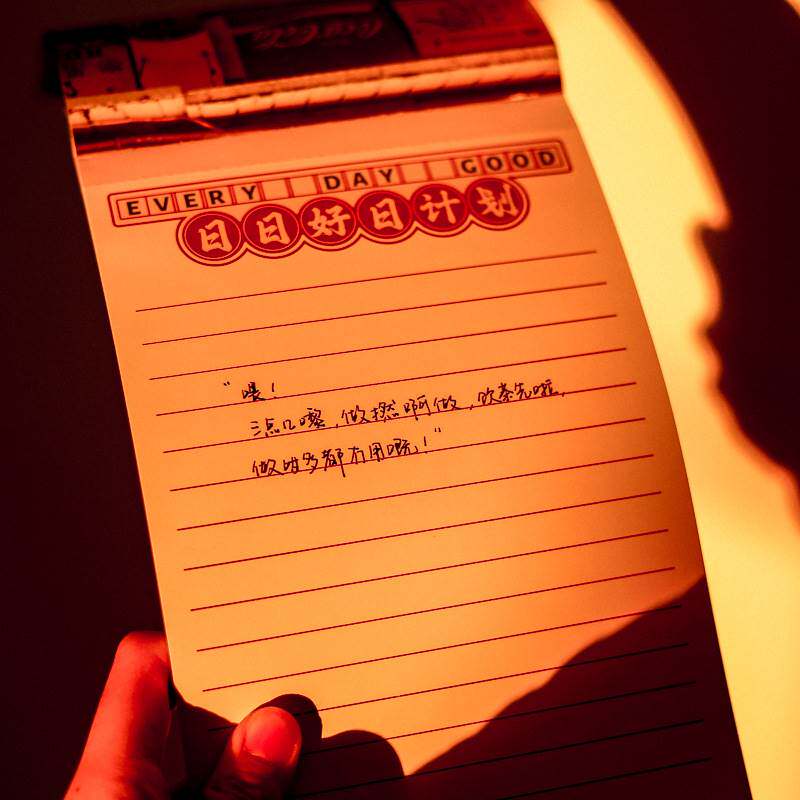 Coca-Cola
EVERY DAY GOOD
日日好日计划
“喂！
三点几嚟，做撚啊做，饮茶先啦，
做咁多都冇用嘅！”